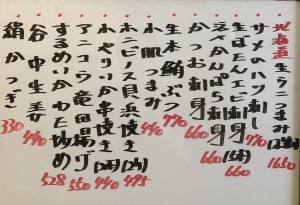 北海道生うにつまみ 1650
サメのハツ刺し 770
生ぼたんエビ刺身 660
えべかんぱち刺身 660
かつお刺身 660
生本鮪ぶつ 770
小肌つまみ 440
ホンビノス貝浜焼き 495
小やりいか串焼き(2本) 440
アンコウ竜田揚げ 550
するめいかわた炒め 528
谷中生姜 440
絹かつぎ 330